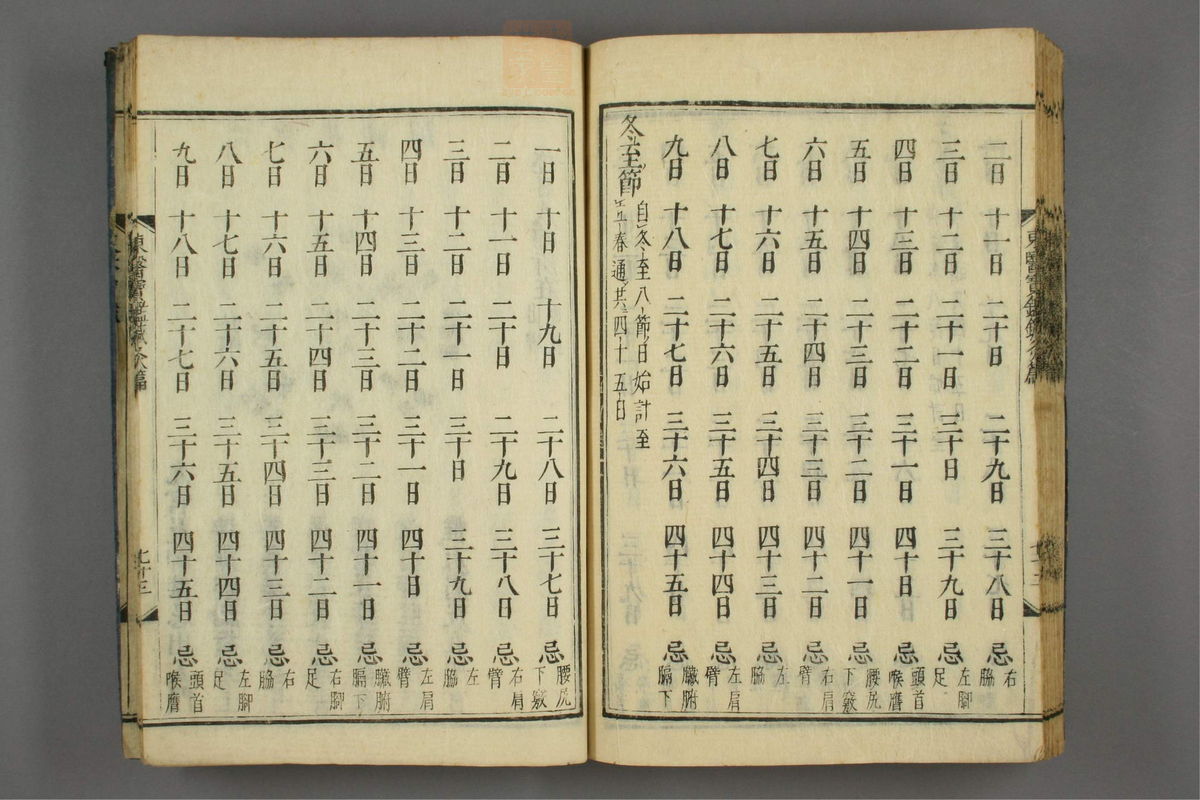 二日 十一日 二十日 二十九日 三十八日 忌 右脇
三日 十二日 二十一日 三十日 三十九日 忌 左腳足
四日 十三日 二十二日 三十一日 四十日 忌 頭首喉膺
五日 十四日 二十三日 三十二日 四十一日 忌 腰尻下竅
六日 十五日 二十四日 三十三日 四十二日 忌 右肩臂
七日 十六日 二十五日 三十四日 四十三日 忌 左脇
八日 十七日 二十六日 三十五日 四十四日 忌 左肩臂
九日 十八日 二十七日 三十六日 四十五日 忌 臟腑膈下
冬至節 自冬至八節日始計至立春通共四十五日
一日 十日 十九日 二十八日 三十七日 忌 腰尻下竅
二日 十一日 二十日 二十九日 三十八日 忌 右肩臂
三日 十二日 二十一日 三十日 三十九日 忌 左脇
四日 十三日 二十二日 三十一日 四十日 忌 左肩臂
五日 十四日 二十三日 三十二日 四十一日 忌 臟腑膈下
六日 十五日 二十四日 三十三日 四十二日 忌 右腳足
七日 十六日 二十五日 三十四日 四十三日 忌 右脇
八日 十七日 二十六日 三十五日 四十四日 忌 左腳足
九日 十八日 二十七日 三十六日 四十五日 忌 頭首喉膺
東醫寶鑑 篇 七十三